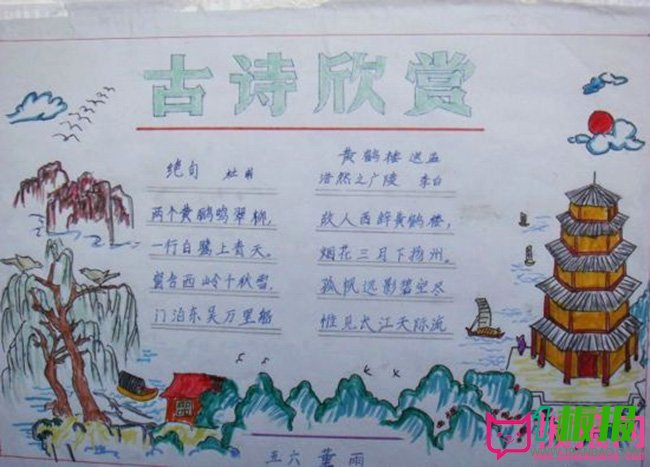 古诗欣赏
绝句 杜甫
两个黄鹂鸣翠柳,
一行白鹭上青天。
窗含西岭千秋雪,
门泊东吴万里船
黄鹤楼送孟
浩然之广陵 李白
故人西辞黄鹤楼,
烟花三月下扬州。
孤帆远影碧空尽
惟见长江天际流
五六 董雨
板报网